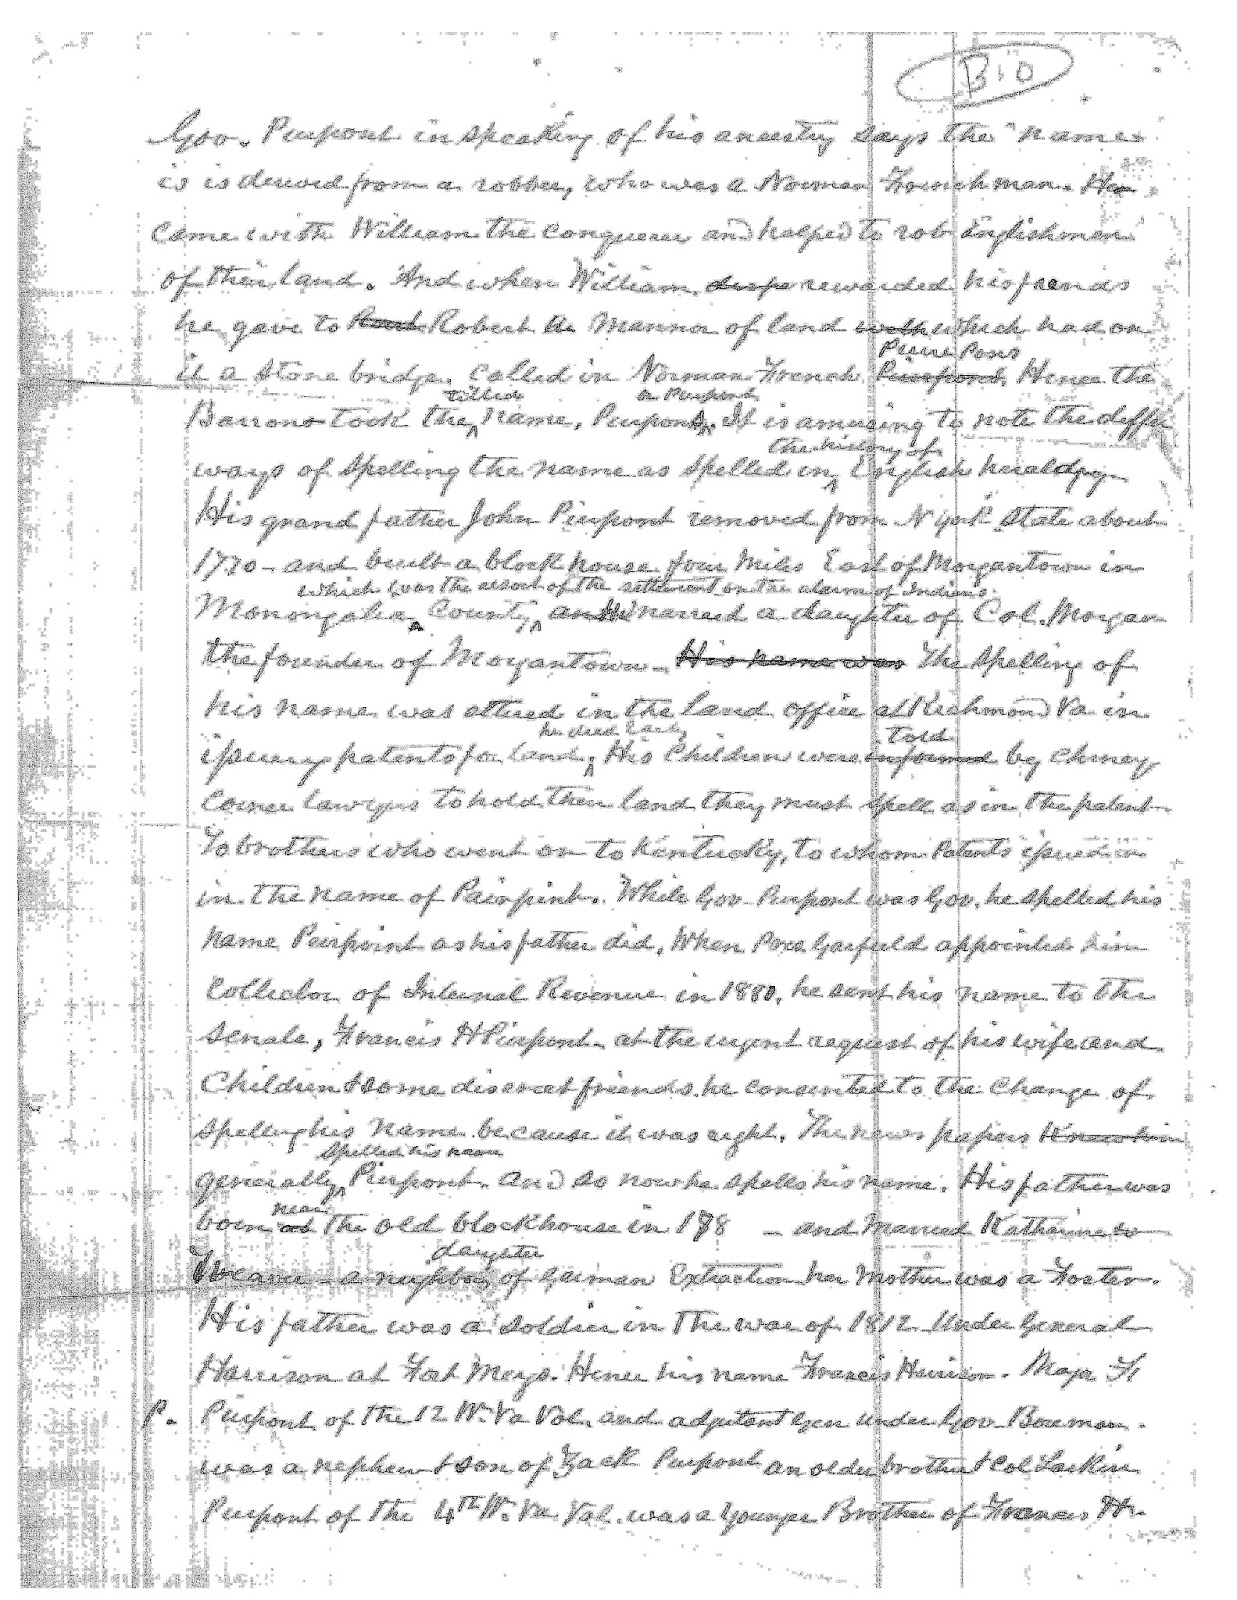 B10
Gov. Pierpont in speaking of his ancestry says the "name
is is derived from a robber, who was a Norman Frenchman. He
came with William the conqueror and helped to rob Englishmen
of their land. And when William rewarded his friends
he gave to Robert a Mannor of land with which had on
Pierre Pons
it a stone bridge, called in Norman French Pierpont. Hence the
titled or Pierpont
Barrons took the name, Pierpont. It is amusing to note the
the history of
ways of spelling the name as spelled in English heraldry
His grand father John Pierpont removed from N York State about
1770 - and built a block house four miles East of Morgantown in
which was the resort of the settlement on the alarm of Indians
Monongalia County, and He married a daughter of Col. Morgan
the founder of Morgantown - His name was The spelling of
his name was altered in the land office at Richmond Va in
he died early told
issuing patents for land, His Children were informed by chimey
corner lawyers to hold their land they must spell as in the patent -
To brothers who went on to Kentucky, to whom Patents issued in
in the name of Pairpint. While Gov. Pierpont was Gov. he spelled his
name Peirpoint as his father did, When Pres Garfield appointed him
Collector of Internal Revenue in 1880, he sent his name to the
Senate, Francis H Pierpont - at the urgent request of his wife and
Children & some discreet friends he consented to the change of
spelling his name because it was right. The news papers Knew him
spelled his name
generally Pierpont. and so now he spells his name. His father was
near
born at the old blockhouse in 178 - and married Katharine
daughter
Weaver - a neighbor of German Extraction her Mother was a Foster.
His father was a soldier in the war of 1812 Under General
Harrison at Fort Meigs. Hence his name Francis Harrison. Maja F
P. Pierpont of the 12 W. Va Vol. and adjutant Gen under Gov Boreman.
was a nephew & son of Zack Pierpont an older brother & Col Larkin
Pierpont of the 4th W. Va Vol. was a younger Brother of Francis H.